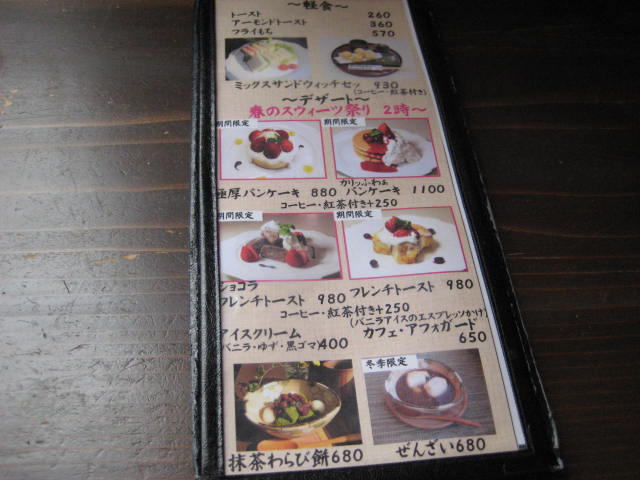 ～軽食～
トースト 260
アーモンドトースト 360
フライもち 570
ミックスサンドウィッチセッ 930
(コーヒー・紅茶付き)
～デザート～
春のスウィーツ祭り 2時～
期間限定 期間限定
極厚パンケーキ 880
カリッふわぁ
パンケーキ 1100
コーヒー・紅茶付き+250
期間限定 期間限定
ショコラ
フレンチトースト 980
フレンチトースト 980
コーヒー・紅茶付き+250
アイスクリーム
(バニラ・ゆず・黒ゴマ)400
(バニラアイスのエスプレッソかけ)
カフェ・アフォガード
650
冬季限定
抹茶わらび餅680
ぜんざい680